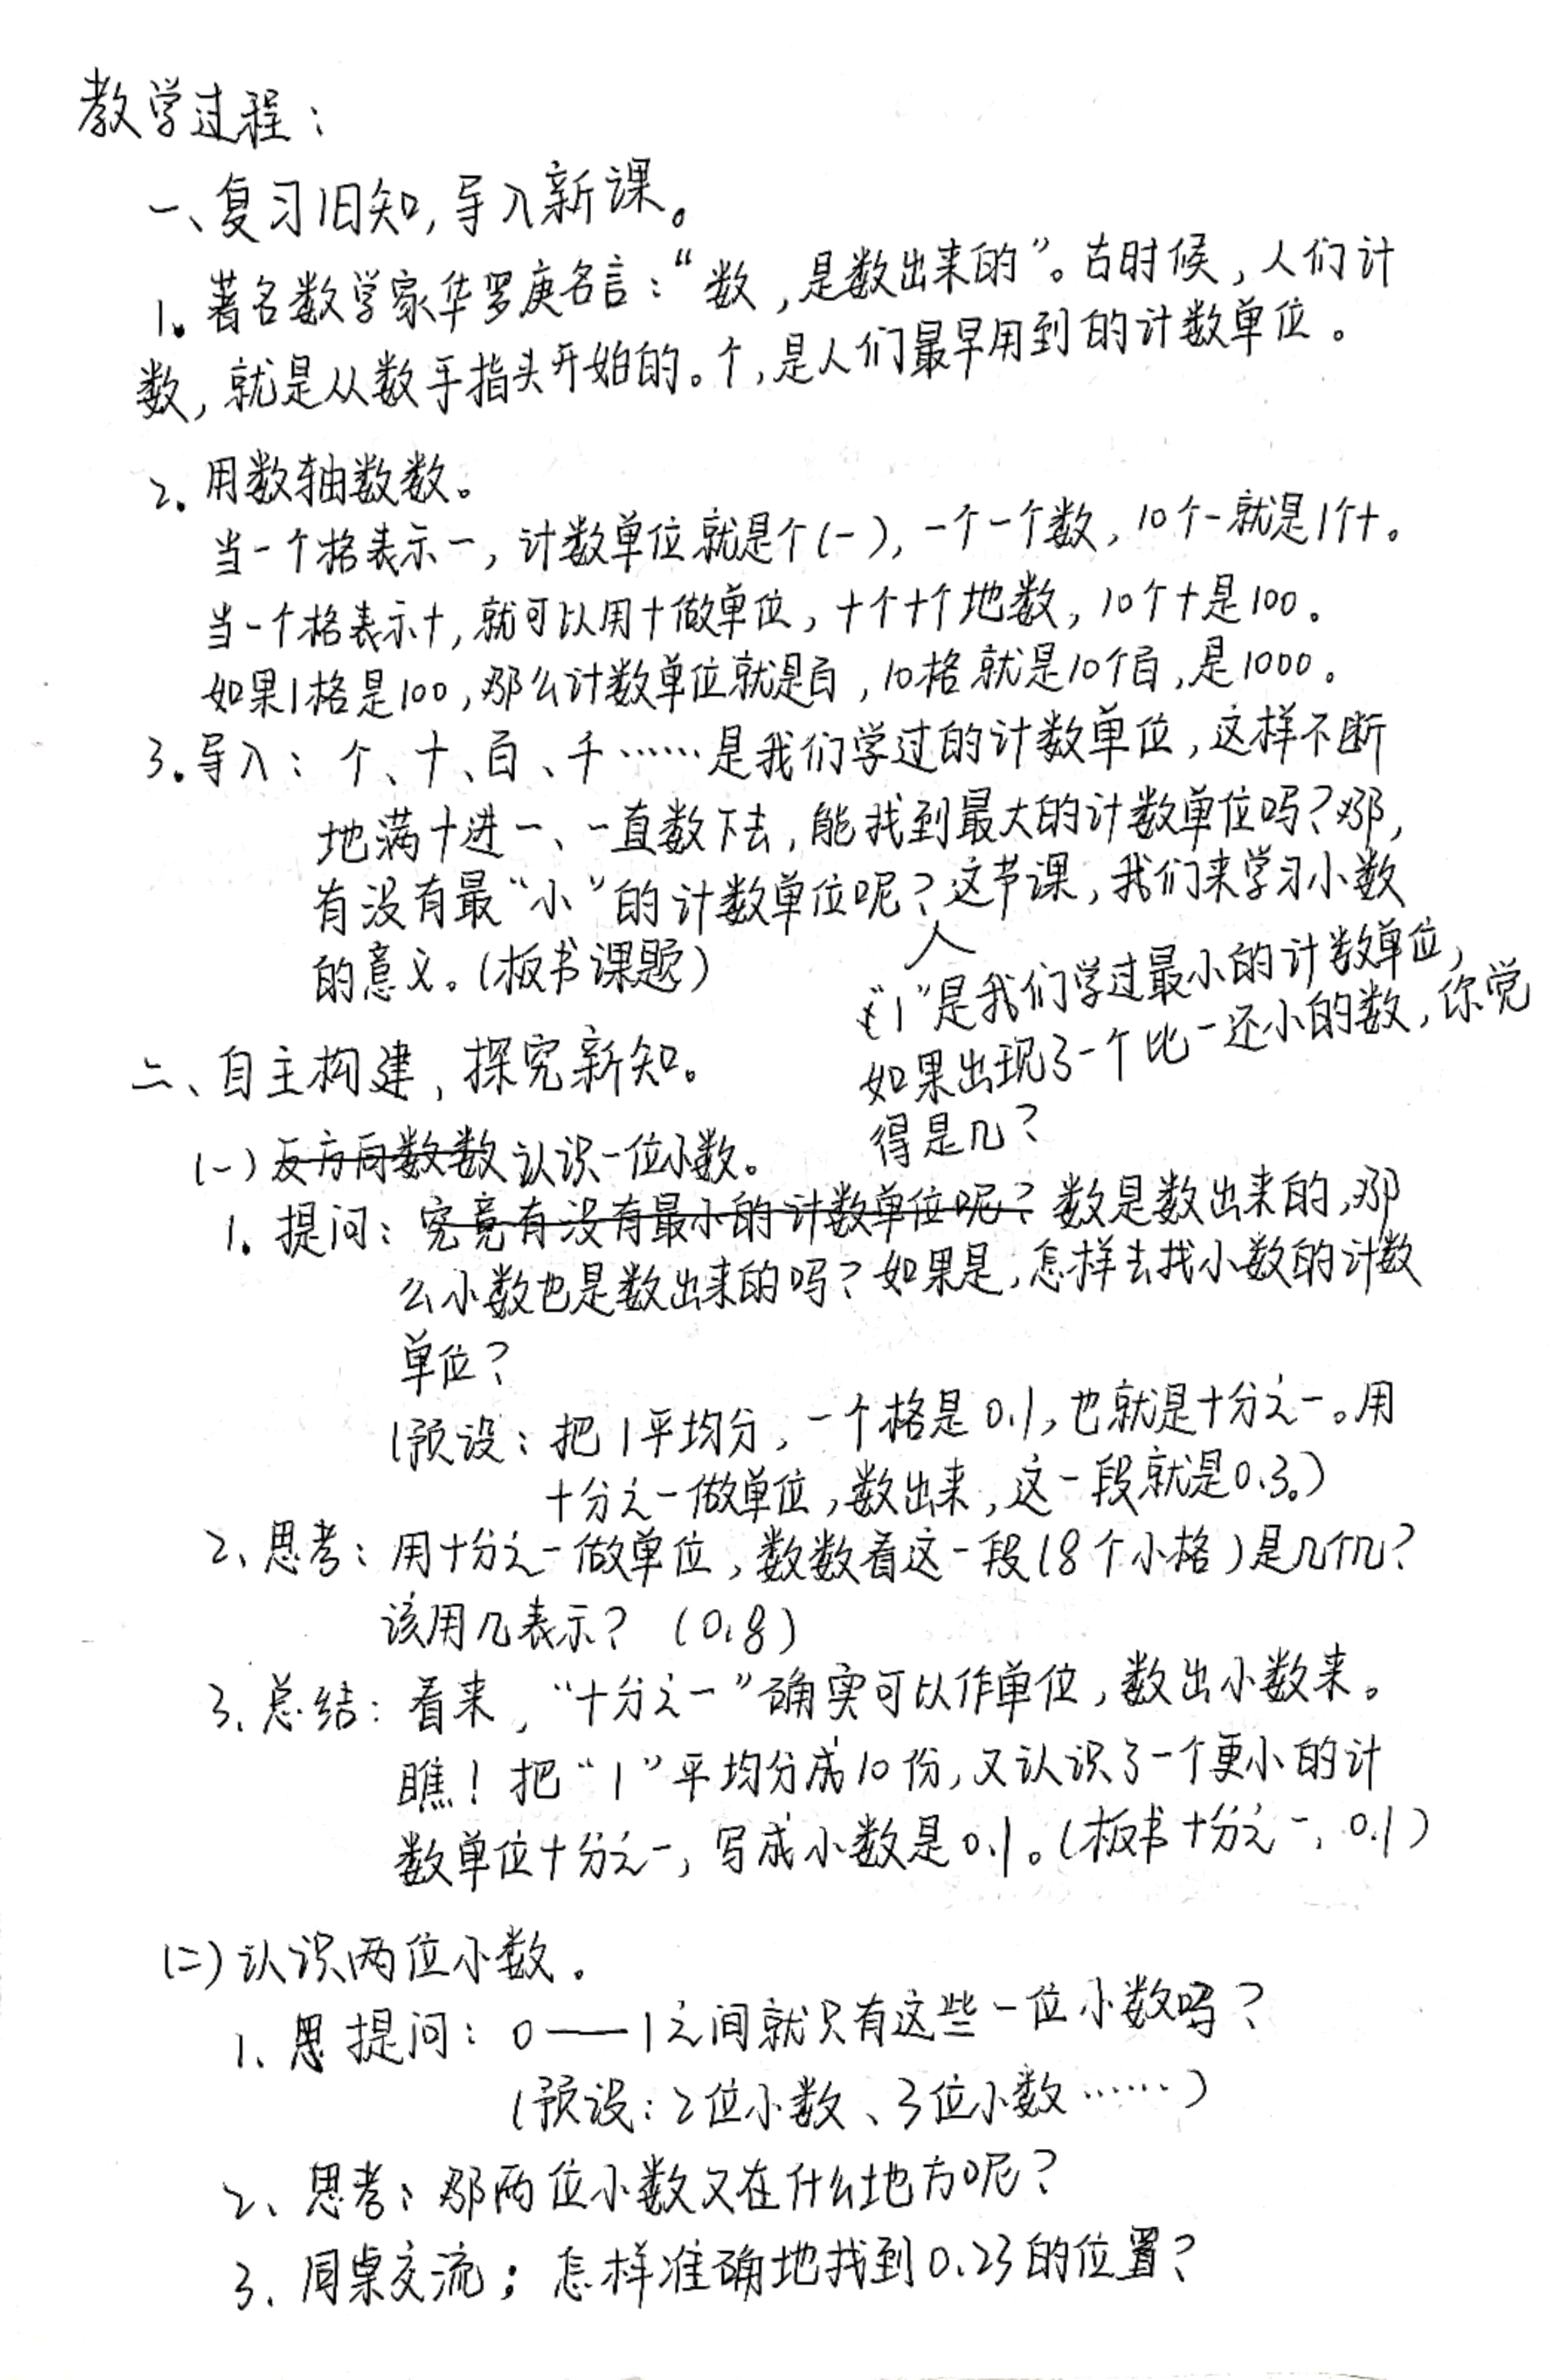 教学过程：
一、复习旧知,导入新课。
1。著名数学家华罗庚名言：“数，是数出来的”。古时候，人们计
数，就是从数手指头开始的。个,是人们最早用到的计数单位。
2。用数轴数数。
当一个格表示一，计数单位就是个(一)，一个一个数，10个一就是1个十。
当一个格表示十，就可以用十做单位，十个十个地数，10个十是100。
如果1格是100，那么计数单位就是百，10格就是10个百，是1000。
3。导入：个、十、百、千……是我们学过的计数单位，这样不断
地满十进一、一直数下去，能找到最大的计数单位吗？那，
有没有最“小”的计数单位呢？这节课，我们来学习小数
的意义。(板书课题)
“1”是我们学过最小的计数单位，
如果出现了一个比一还小的数，你觉
得是几？
二、自主构建，探究新知。
(一)反方向数数认识一位小数。
1。提问：究竟有没有最小的计数单位呢？数是数出来的，那
么小数也是数出来的吗？如果是，怎样去找小数的计数
单位？
(预设：把1平均分，一个格是0.1，也就是十分之一。用
十分之一做单位，数出来，这一段就是0.3。)
2、思考：用十分之一做单位，数数看这一段(8个小格)是几个几？
该用几表示？(0.8)
3、总结：看来，“十分之一”确实可以作单位，数出小数来。
瞧！把“1”平均分成10份，又认识了一个更小的计
数单位十分之一，写成小数是0.1。(板书十分之一、0.1)
(二)认识两位小数。
1、思提问：0——1之间就只有这些一位小数吗？
(预设：2位小数、3位小数……)
2、思考：那两位小数又在什么地方呢？
3、同桌交流；怎样准确地找到0.23的位置？